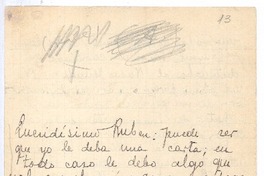 13
Queridísimo Ruben: puede ser
que yo le deba una carta; en
todo caso le debo algo que